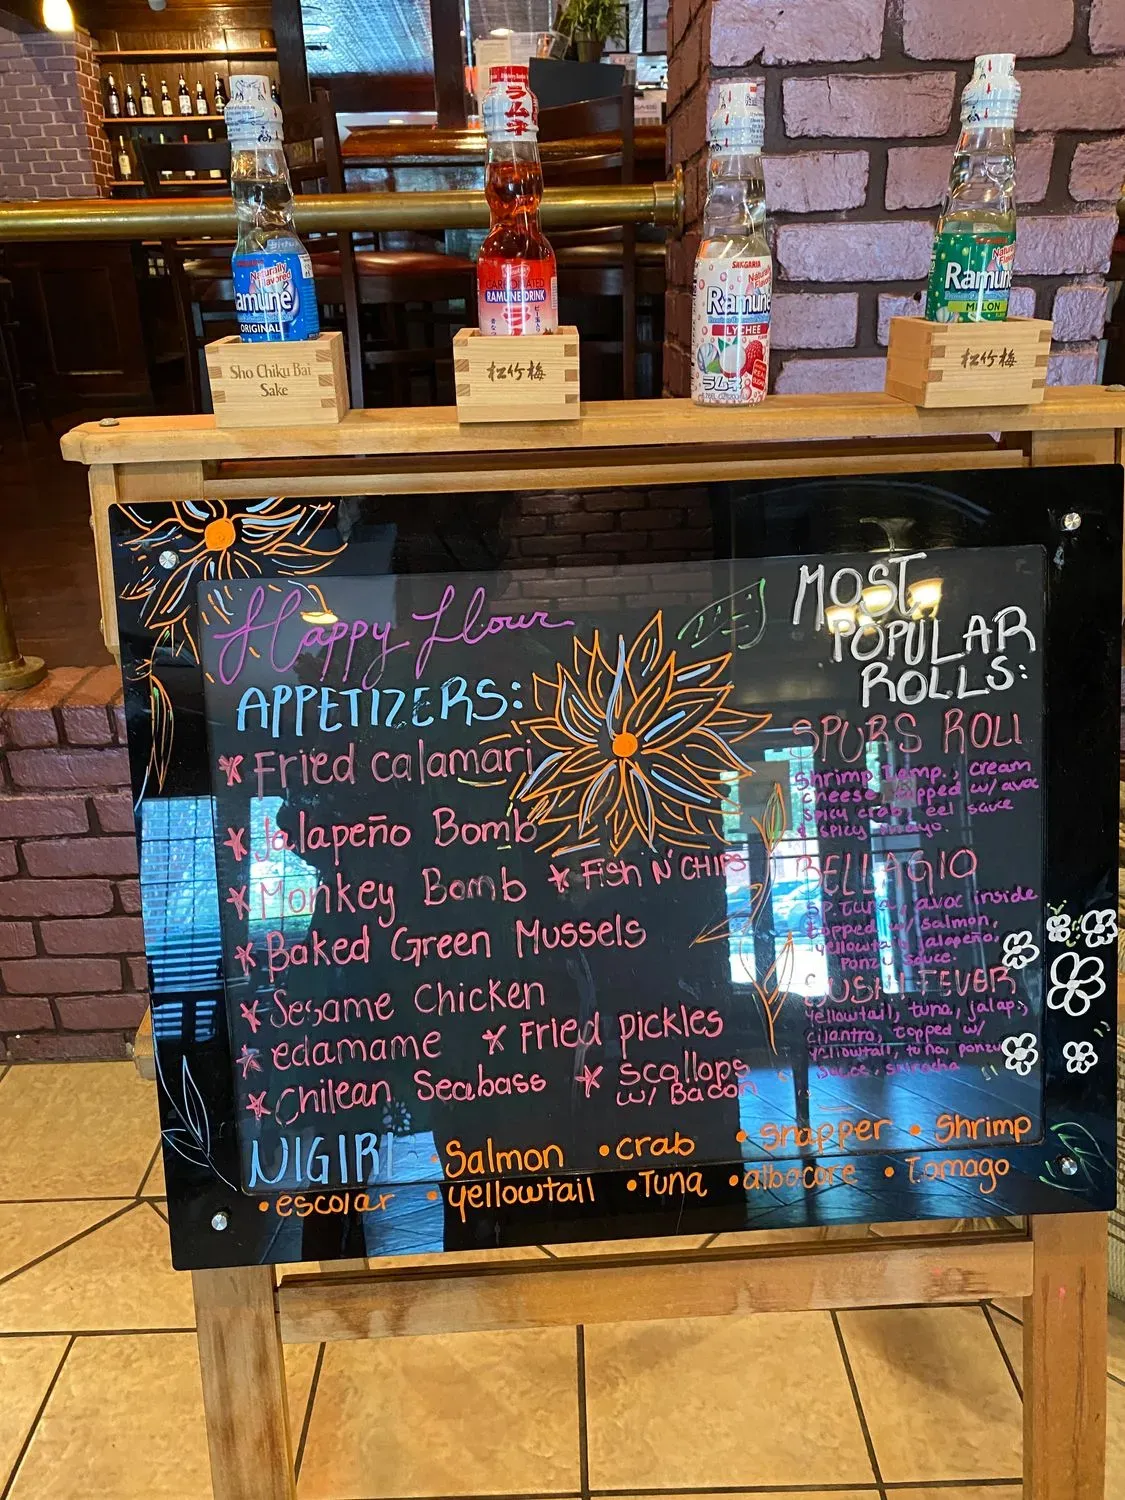 ラムネ
Naturally
Flavored
Ramuné
ORIGINAL
CARBONATED
RAMUNE DRINK
SHIRAKIKU
SANGARIA
Naturally
Ramuné
LYCHEE
ラムネ
SANGARIA
Naturally
Flavored
Ramuné
MELON
Sho Chiku Bai
Sake
松竹梅
松竹梅
Happy Hour
APPETIZERS:
Fried calamari
Jalapeño Bomb
Monkey Bomb
Fish N' CHIPS
Baked Green Mussels
Sesame Chicken
edamame
Fried pickles
Chilean Seabass
Scallops
w/ Bacon
MOST
POPULAR
ROLLS:
SPURS ROLL
Shrimp Temp., cream
cheese topped w/ avoc
spicy crab, eel sauce
& spicy mayo.
BELLAGIO
SP. Tuna, avoc inside
topped w/ salmon,
yellowtail jalapeño,
Ponzu sauce.
SUSHI FEVER
yellowtail, tuna, jalap.,
cilantro, topped w/
yellowtail, tuna, ponzu
sauce, sriracha
NIGIRI • Salmon • crab • Snapper • Shrimp
• escolar • yellowtail • Tuna • albocore • Tomago